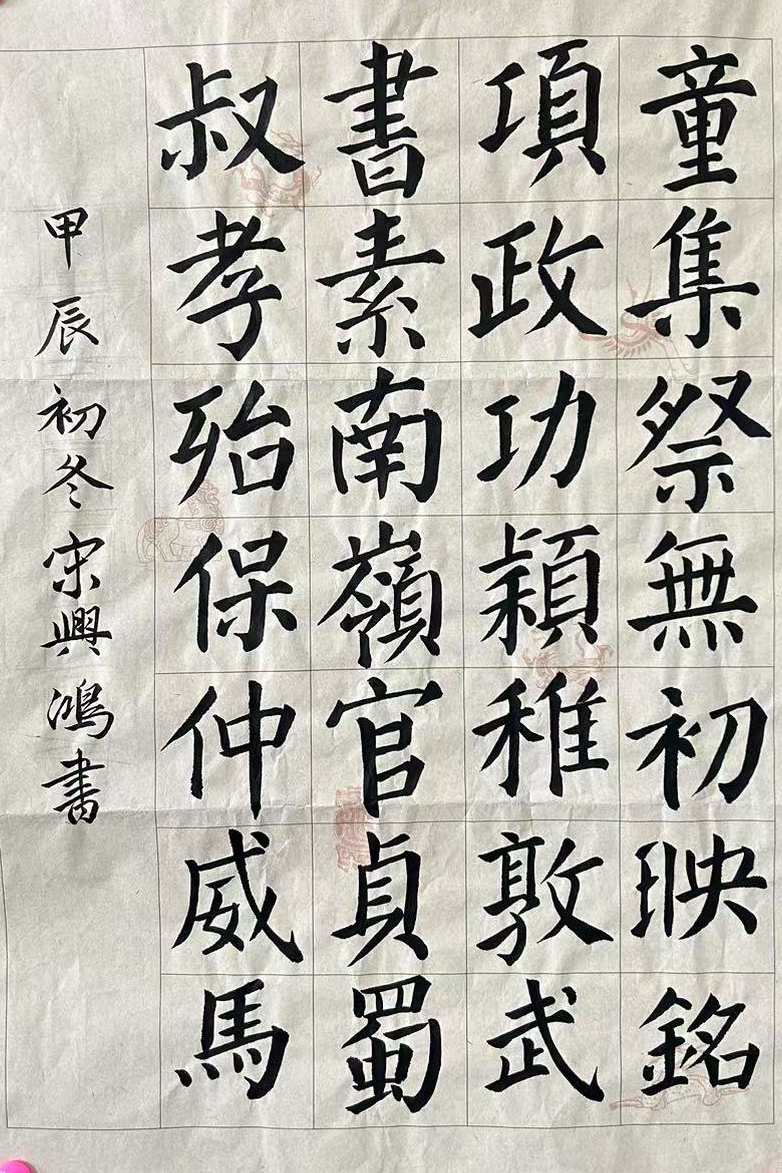 童集祭無初映銘
項政功穎稚敦武
書素南嶺官貞蜀
叔孝殆保仲威馬
甲辰初冬宋興鴻書